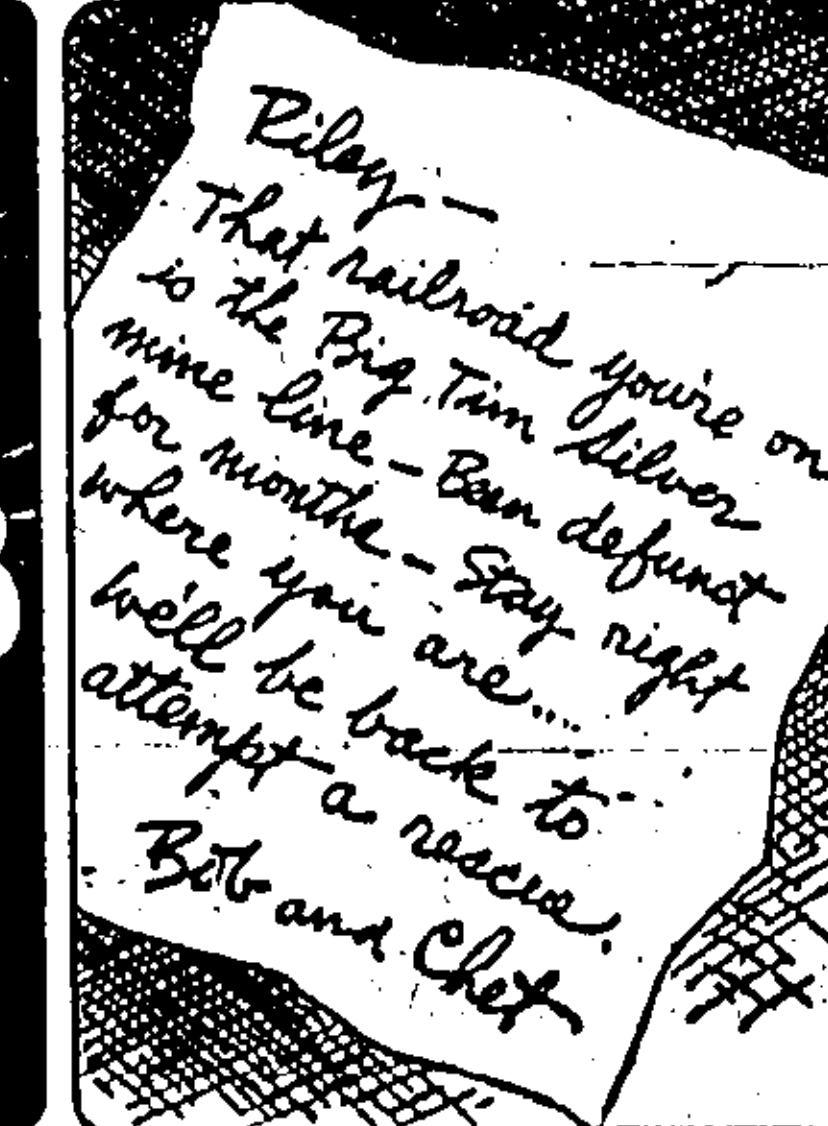 Riley —
That railroad you're on
is the Big Tim Silver
mine line — Been defunct
for months — Stay right
where you are....
We'll be back to
attempt a rescue.
Bob and Chet